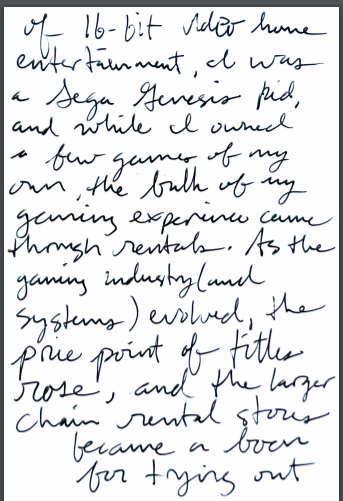 of 16-bit video home
entertainment, I was
a Sega Genesis kid,
and while I owned
a few games of my
own, the bulk of my
gaming experience came
through rentals. As the
gaming industry (and
systems) evolved, the
price point of titles
rose, and the larger
chain rental stores
became a boon
for trying out